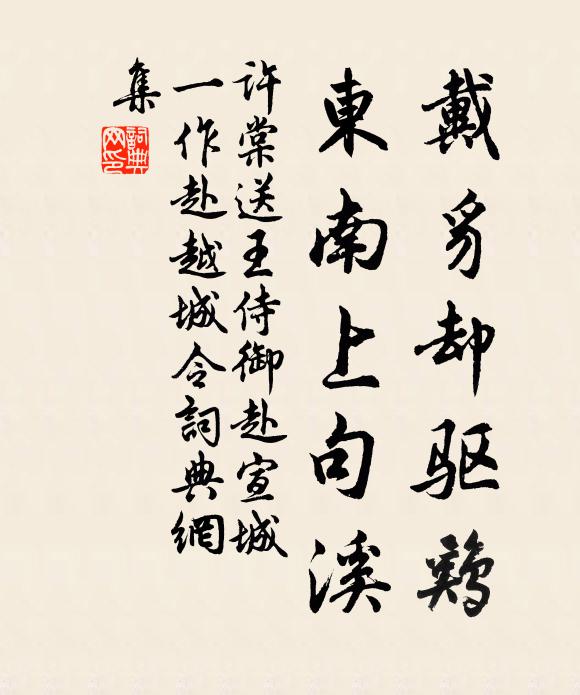 戴豸却驱鷄
東南上句溪
許棠送王侍御赴宣城
一作赴越城令詞典網
集
詞典網印